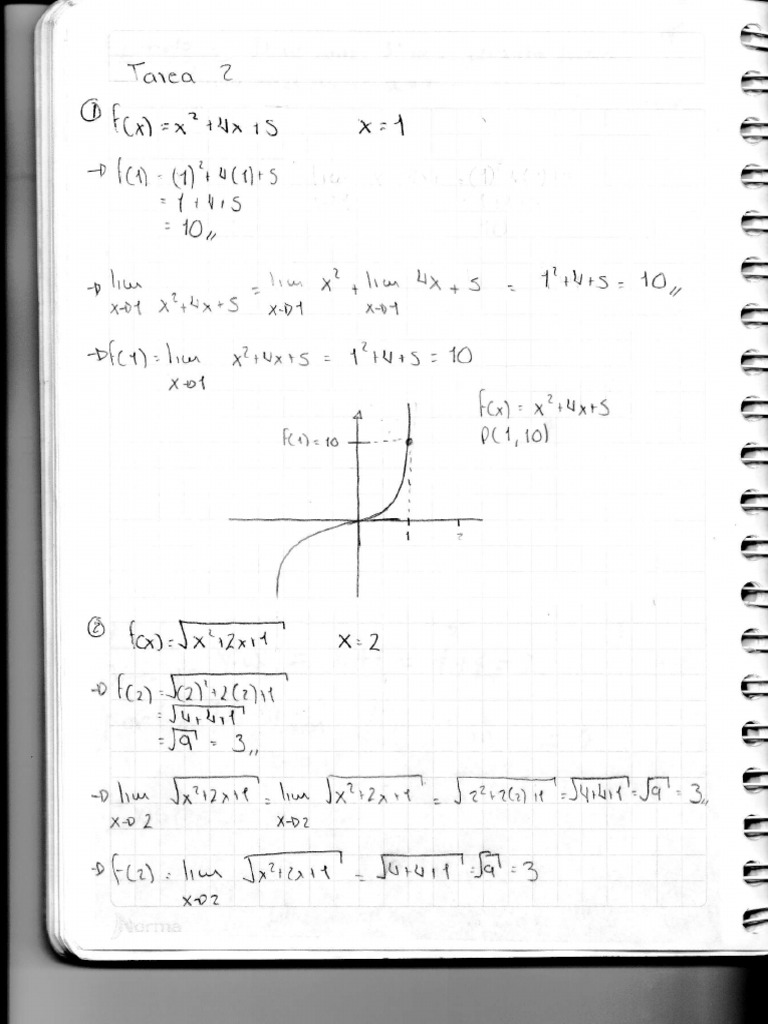 Tarea 2
① f(x) = x² + 4x + 5 x = 1
→ f(1) = (1)² + 4(1) + 5
= 1 + 4 + 5
= 10,,
→ lim x→1 x² + 4x + 5 = lim x→1 x² + lim x→1 4x + 5 = 1² + 4 + 5 = 10,,
→ f(1) = lim x→1 x² + 4x + 5 = 1² + 4 + 5 = 10
f(x) = x² + 4x + 5
P(1, 10)
f(1) = 10
1 2
② f(x) = √(x² + 2x + 1) x = 2
→ f(2) = √((2)² + 2(2) + 1)
= √(4 + 4 + 1)
= √9 = 3,,
→ lim x→2 √(x² + 2x + 1) = lim x→2 √(x² + 2x + 1) = √(2² + 2(2) + 1) = √(4 + 4 + 1) = √9 = 3,,
→ f(2) = lim x→2 √(x² + 2x + 1) = √(4 + 4 + 1) = √9 = 3
Norma